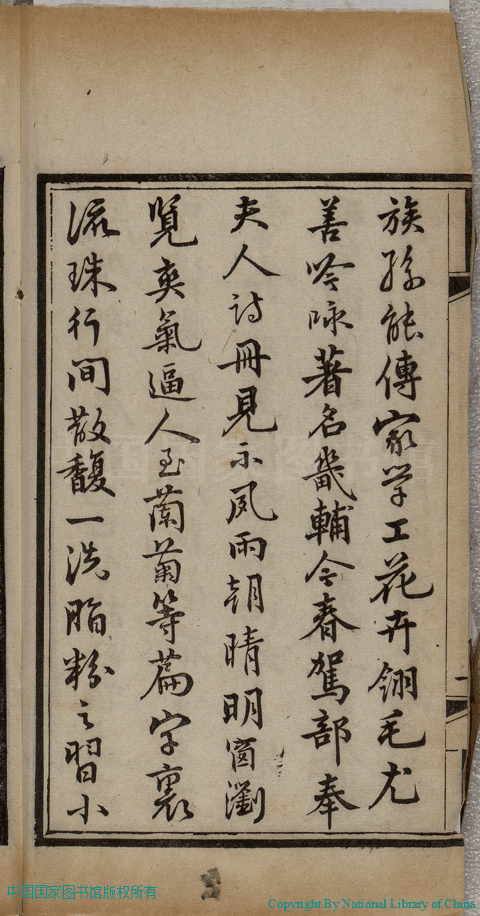 族孫能傳家学工花卉翎毛尤
善吟咏著名畿輔今春駕部奉
夫人詩冊見示夙雨朝晴明窗瀏
覽爽氣逼人至蘭菊等篇字裏
流珠行間散馥一洗脂粉之習小
中国国家图书馆版权所有
Copyright By National Library of China